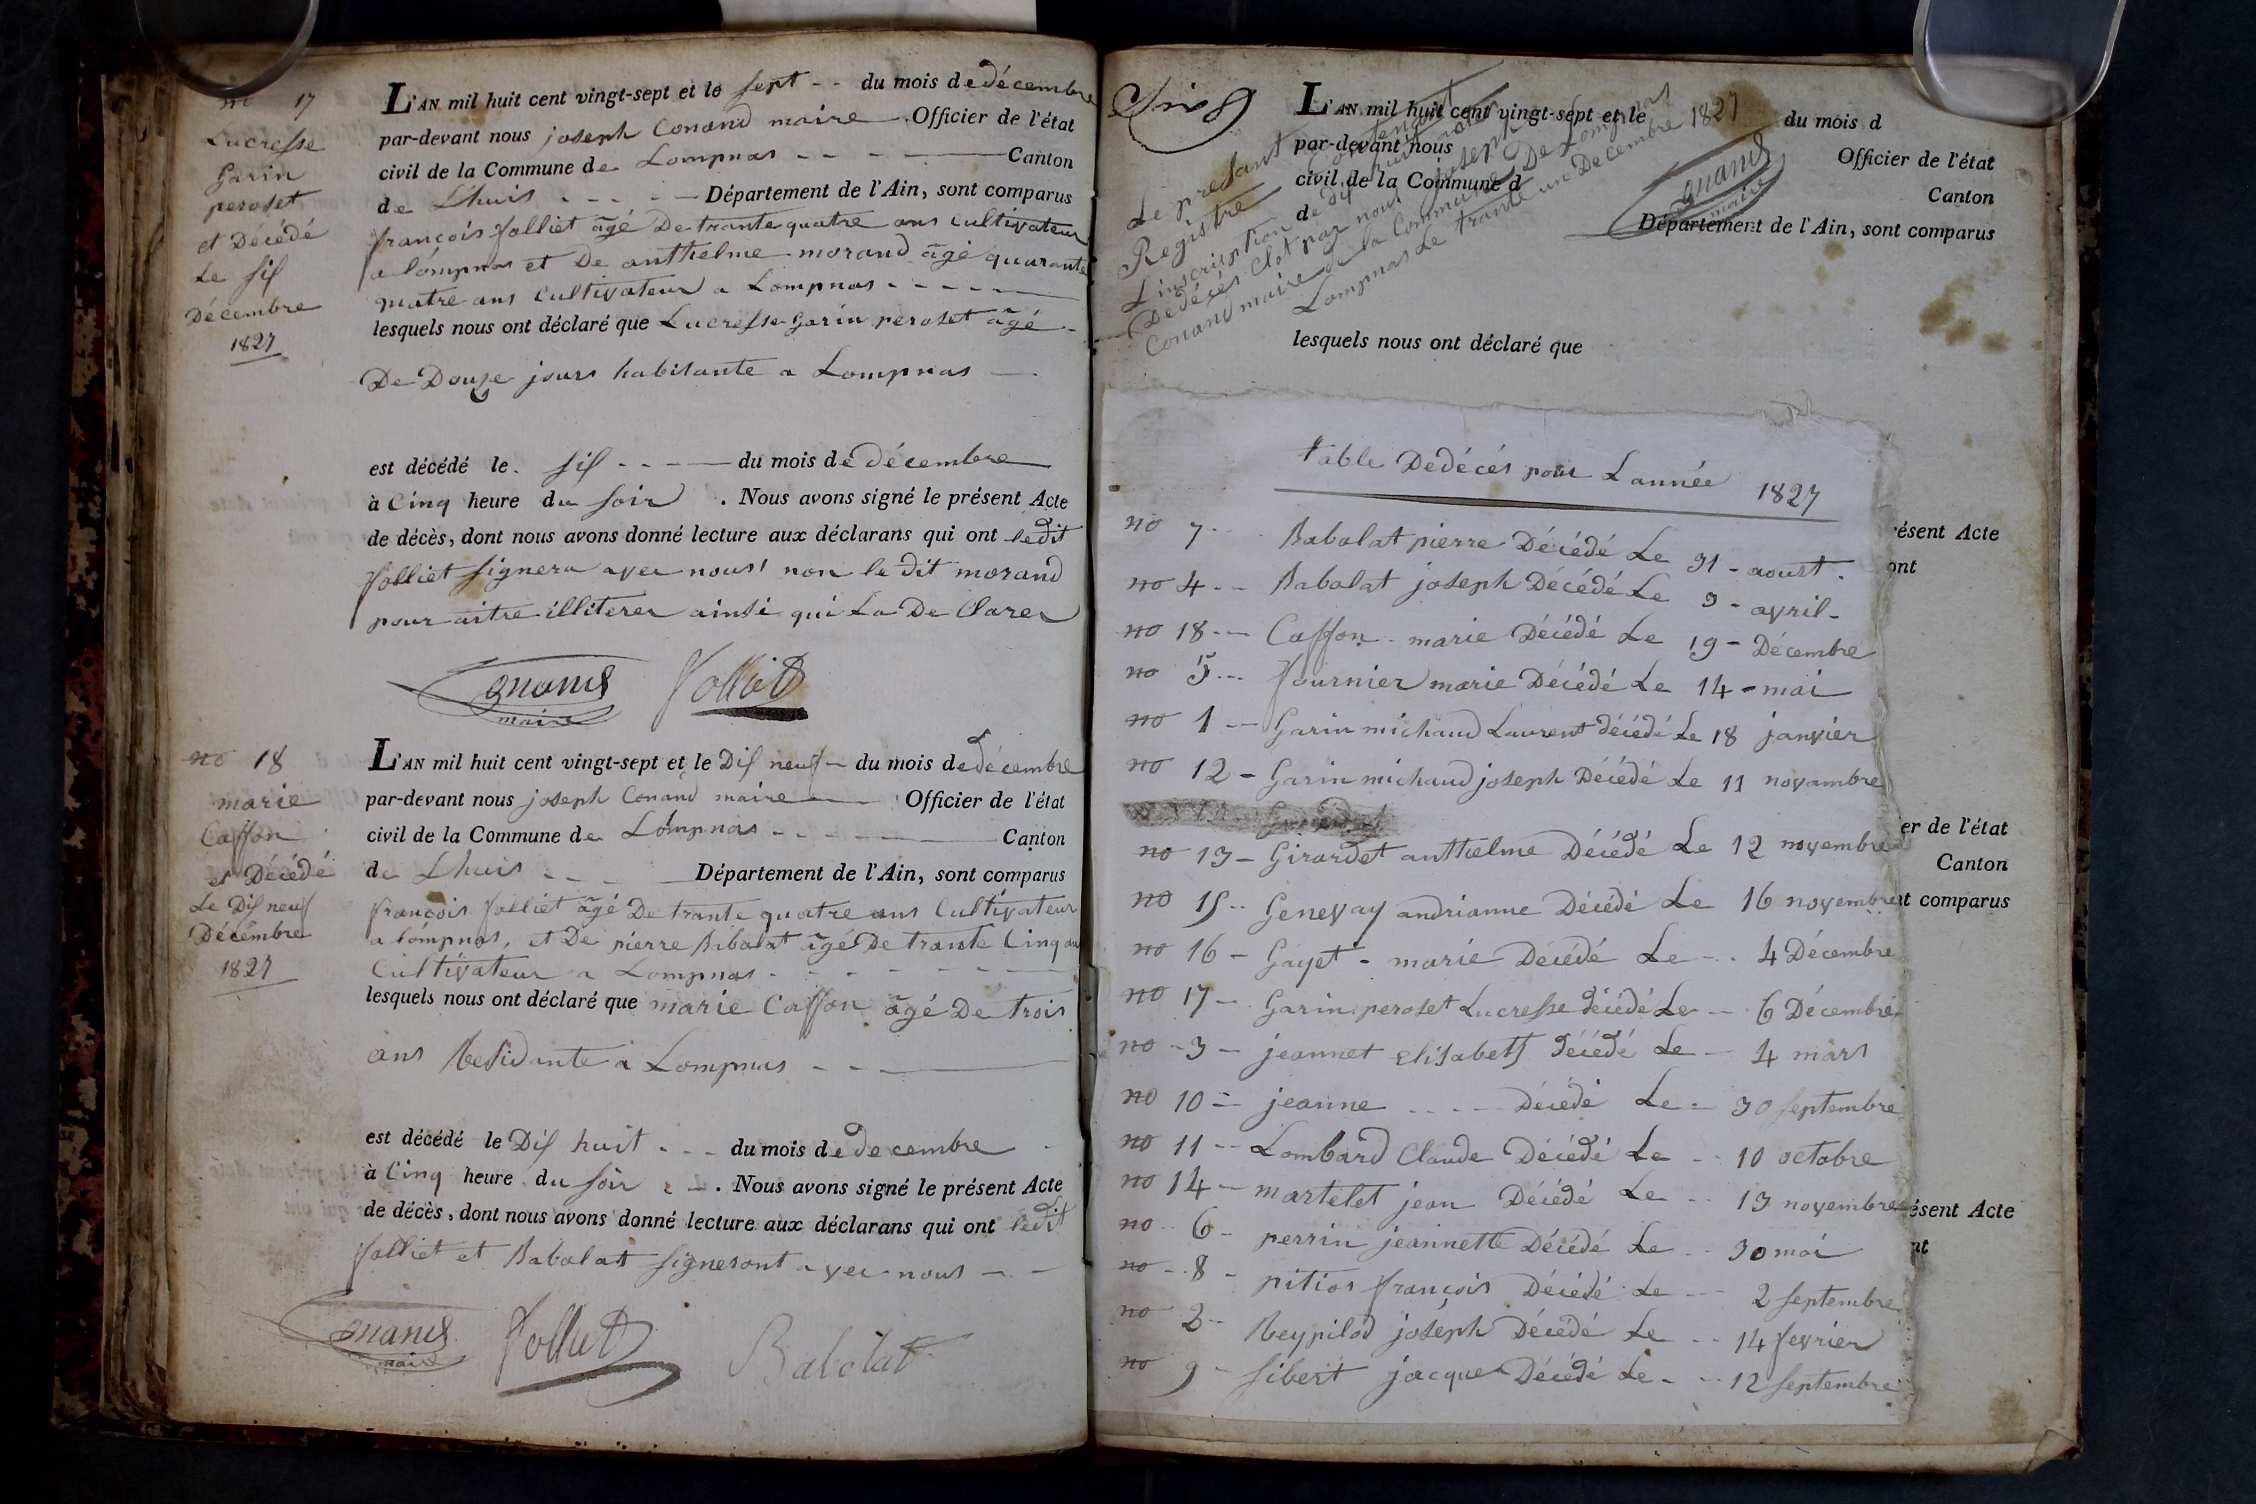 no 17
Lucresse
Garin
peroset
et Décédé
Le six
Décembre
1827
L'AN mil huit cent vingt-sept et le sept -- du mois de décembre
par-devant nous joseph Conand maire Officier de l'état
civil de la Commune de Lompnas ---- Canton
de Lhuis ---- Département de l'Ain, sont comparus
françois Jolliet âgé De trante quatre ans cultivateur
a lompnas et De anthelme morand âgé quarante
quatre ans Cultivateur a Lompnas -----
lesquels nous ont déclaré que Lucresse Garin peroset âgé
De Douze jours habitante a Lompnas
est décédé le six ---- du mois de décembre
à Cinq heure du soir . Nous avons signé le présent Acte
de décès, dont nous avons donné lecture aux déclarans qui ont ledit
Jolliet signera avec nous non le dit morand
pour aitre illiterer ainsi qui La De Clarer
Conand Jolliet
maire
no 18
marie
Caffon
et Décédé
Le Dix neuf
Décémbre
1827
L'AN mil huit cent vingt-sept et le Dix neuf - du mois de décembre
par-devant nous joseph Conand maire Officier de l'état
civil de la Commune de Lompnas ---- Canton
de Lhuis --- Département de l'Ain, sont comparus
françois Jolliet âgé De trante quatre ans Cultivateur
a lompnas, et De pierre Bibolat âgé De trante Cinq ans
Cultivateur a Lompnas -------
lesquels nous ont déclaré que marie Caffon âgé De trois
ans Residante a Lompnas ---
est décédé le Dix huit --- du mois de decembre
à Cinq heure du soir . -. Nous avons signé le présent Acte
de décès, dont nous avons donné lecture aux déclarans qui ont ledit
Jolliet et Babolat signeront avec nous --
Conand Jolliet Babolat
maire
L'AN mil huit cent vingt-sept et le du mois d
par-devant nous Officier de l'état
civil de la Commune d Canton
d Département de l'Ain, sont comparus
Le presant
Registre Contenant
L'inscription de Dix huit actes
De décés Clot par nous joseph
Conand maire de la Commune De Lompnas
Lompnas Le trante un Decembre 1827
Conand
maire
lesquels nous ont déclaré que
table Dedécés pour Lannée 1827
no 7 -- Babolat pierre Décédé Le 31 - aoust .
no 4 -- Babolat joseph Décédé Le 3 - avril -
no 18 -- Caffon - marie Décédé Le 19 - Décembre
no 5 -- fournier marie Décédé Le 14 - mai
no 1 -- Garin michaud Laurent décédé Le 18 janvier
no 12 - Garin michaud joseph Décédé Le 11 novambre
no 13 - Girardet anthelme Décédé Le 12 novembre
no 15 -- Genevay andrianne Décédé Le 16 novembre
no 16 - Gayet - marie Décédé Le -- 4 Décembre
no 17 - Garin peroset Lucresse décédé Le -- 6 Décembre
no - 3 - jeannet Elisabett décédé Le - 4 mars
no 10 -- jeanne ---- Décédé Le - 30 septembre
no 11 -- Lombard Claude Décédé Le -- 10 octobre
no 14 - martelet jean Décédé Le -- 13 novembre
no 6 - perrin jeannette Décédé Le -- 30 mai
no - 8 - pitios françois Décédé Le -- 2 septembre
no 2 - Reypilod joseph Décédé Le -- 14 fevrier
no 9 - sibert jacque Décédé Le - -- 12 septembre
ésent Acte
ont
er de l'état
Canton
t comparus
ésent Acte
nt